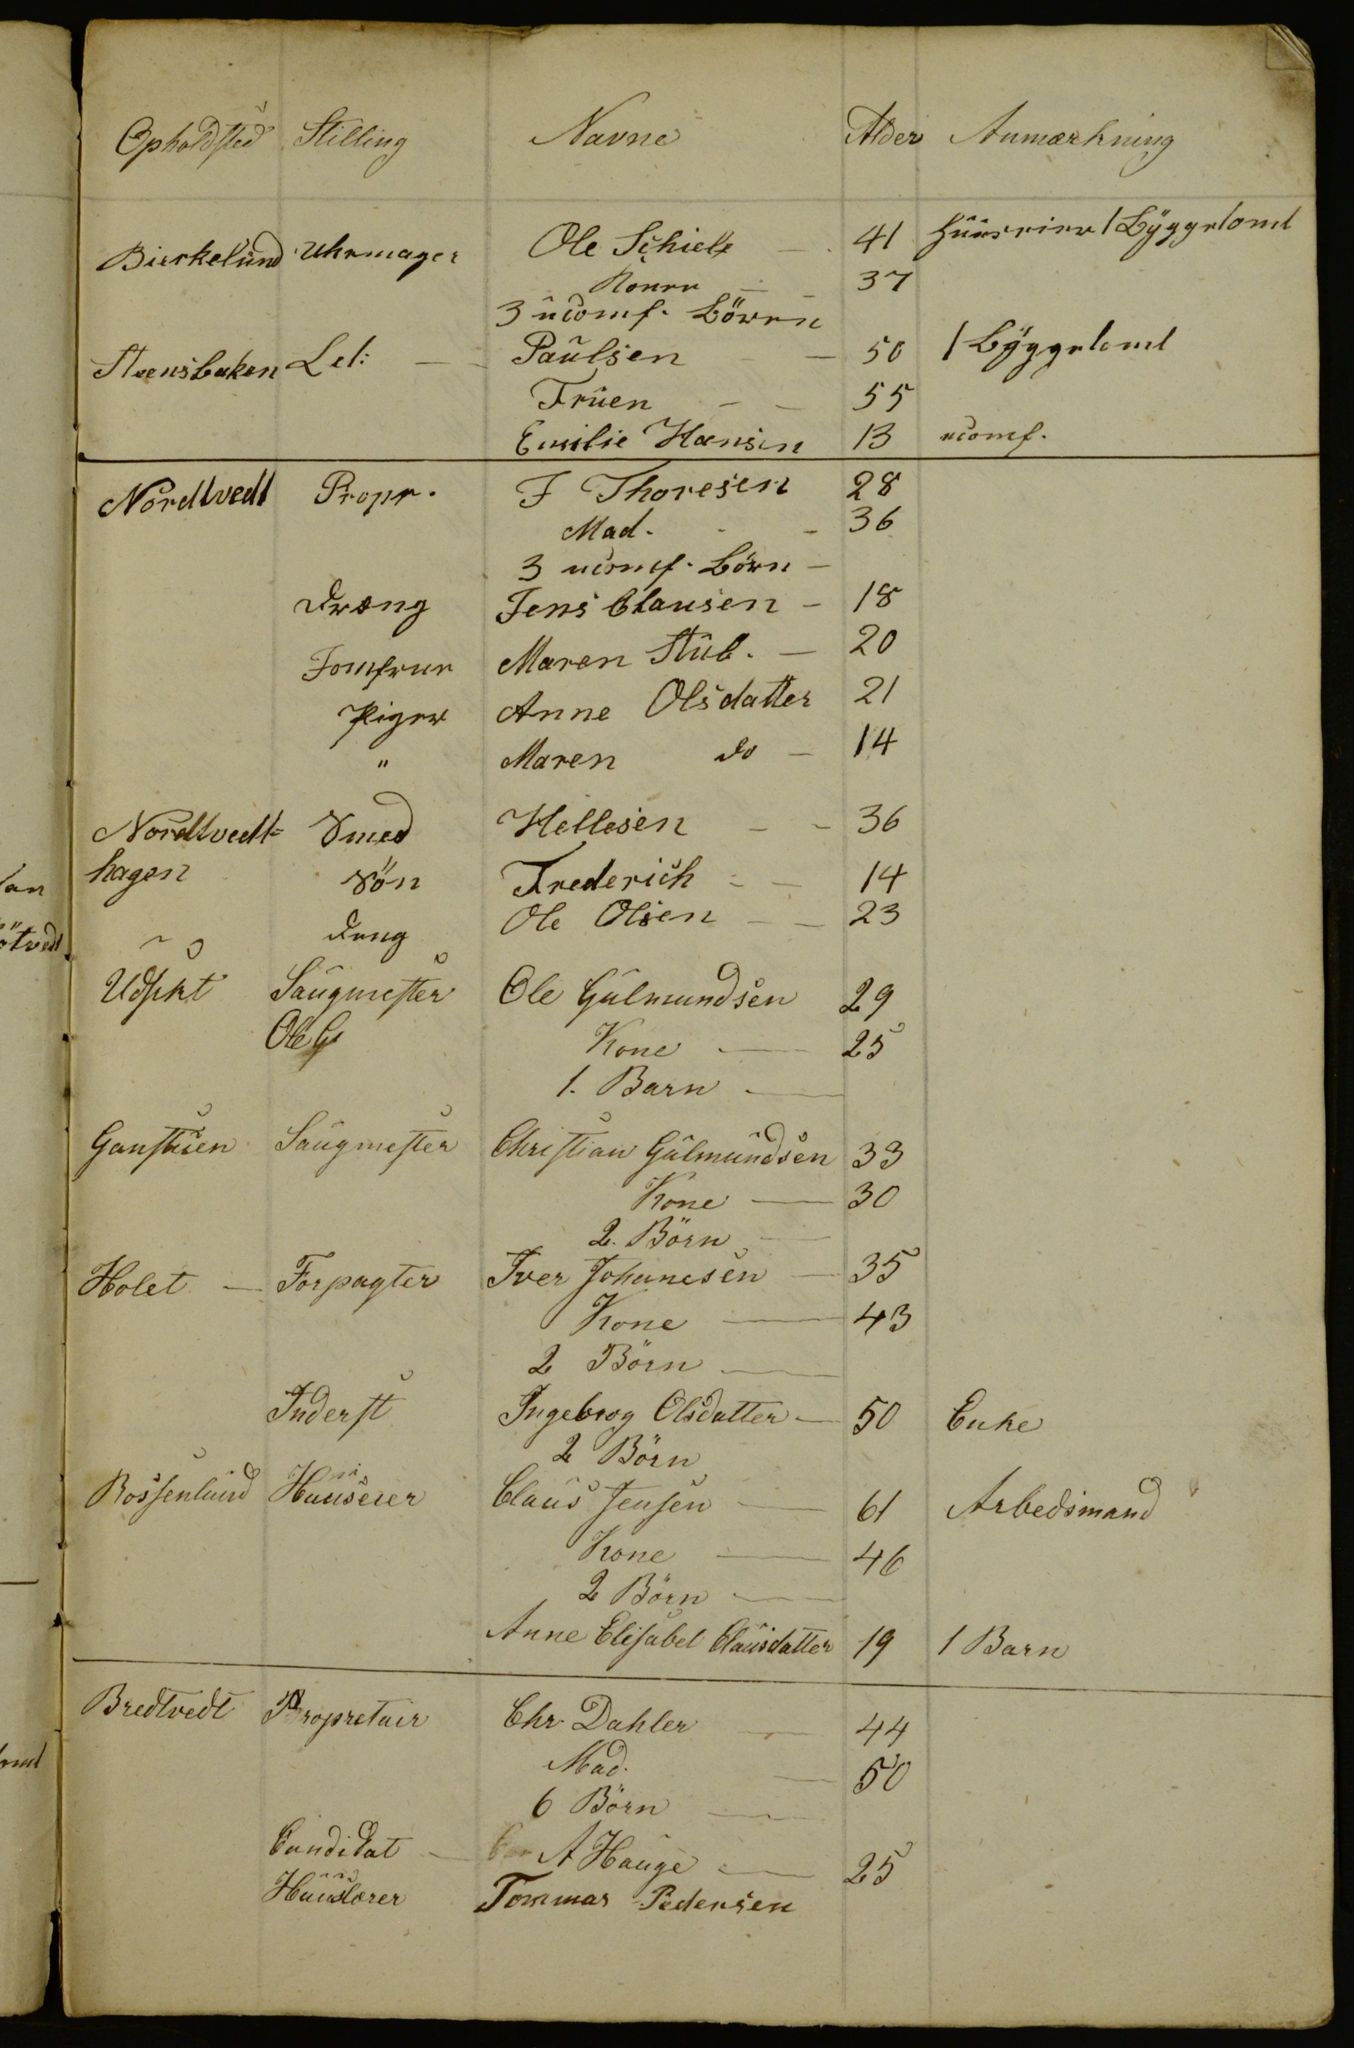 Opholdsted Stilling Navne Alder Anmærkning
Bierkelund Uhrmager Ole Schiele — 41 Huuseier 1 Byggelomt
Konen — 37
3 uconf. Börn
Steensbaken Lct: — Paulsen — 50 1 Byggelomt
Fruen — 55
Emilie Hansen 13 uconf.
Nordtvedt Propr. F Thoresen 28
Mad. - - 36
3 uconf. Börn —
Dræng Jens Clausen — 18
Jomfrue Maren Stub. — 20
Piger Anne Olsdatter 21
" Maren do — 14
Nordtvedt= Smed Hellesen — - 36
hagen Sön Frederich — — 14
Dreng Ole Olsen — — 23
Udsikt Saugmester Ole Gulmundsen 29
Ole G Kone — 25
1. Barn —
Ganstuen Saugmester Christian Gulmundsen 33
Kone — 30
2. Börn —
Holet — Forpagter Iver Johanesen — 35
Kone — 43
2 Börn —
Inderst Ingebrog Olsdatter — 50 Enke
2 Börn
Rossenlund Huuseier Claus Jensen — 61 Arbedsmand
Kone — 46
2 Börn —
Anne Elisabet Clausdatter 19 1 Barn
Bredtvedt Propretair Chr. Dahler — 44
Mad. — 50
6 Börn —
Candidat — A Hauge — 25
Huuslærer Tommas Pedersen
an
ötvedt
omt